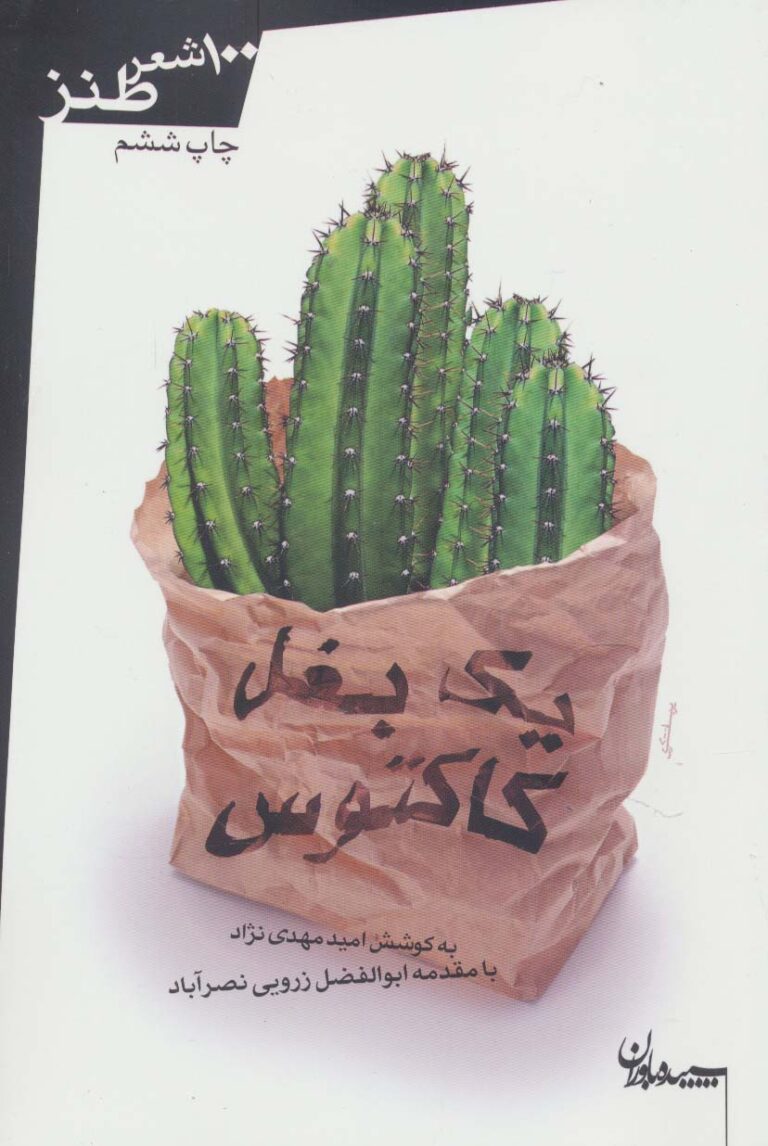 ۱۰۰ شعر
طنز
چاپ ششم
یک بغل
کاکتوس
به کوشش امید مهدی نژاد
با مقدمه ابوالفضل زرویی نصرآباد
سپیده باوران